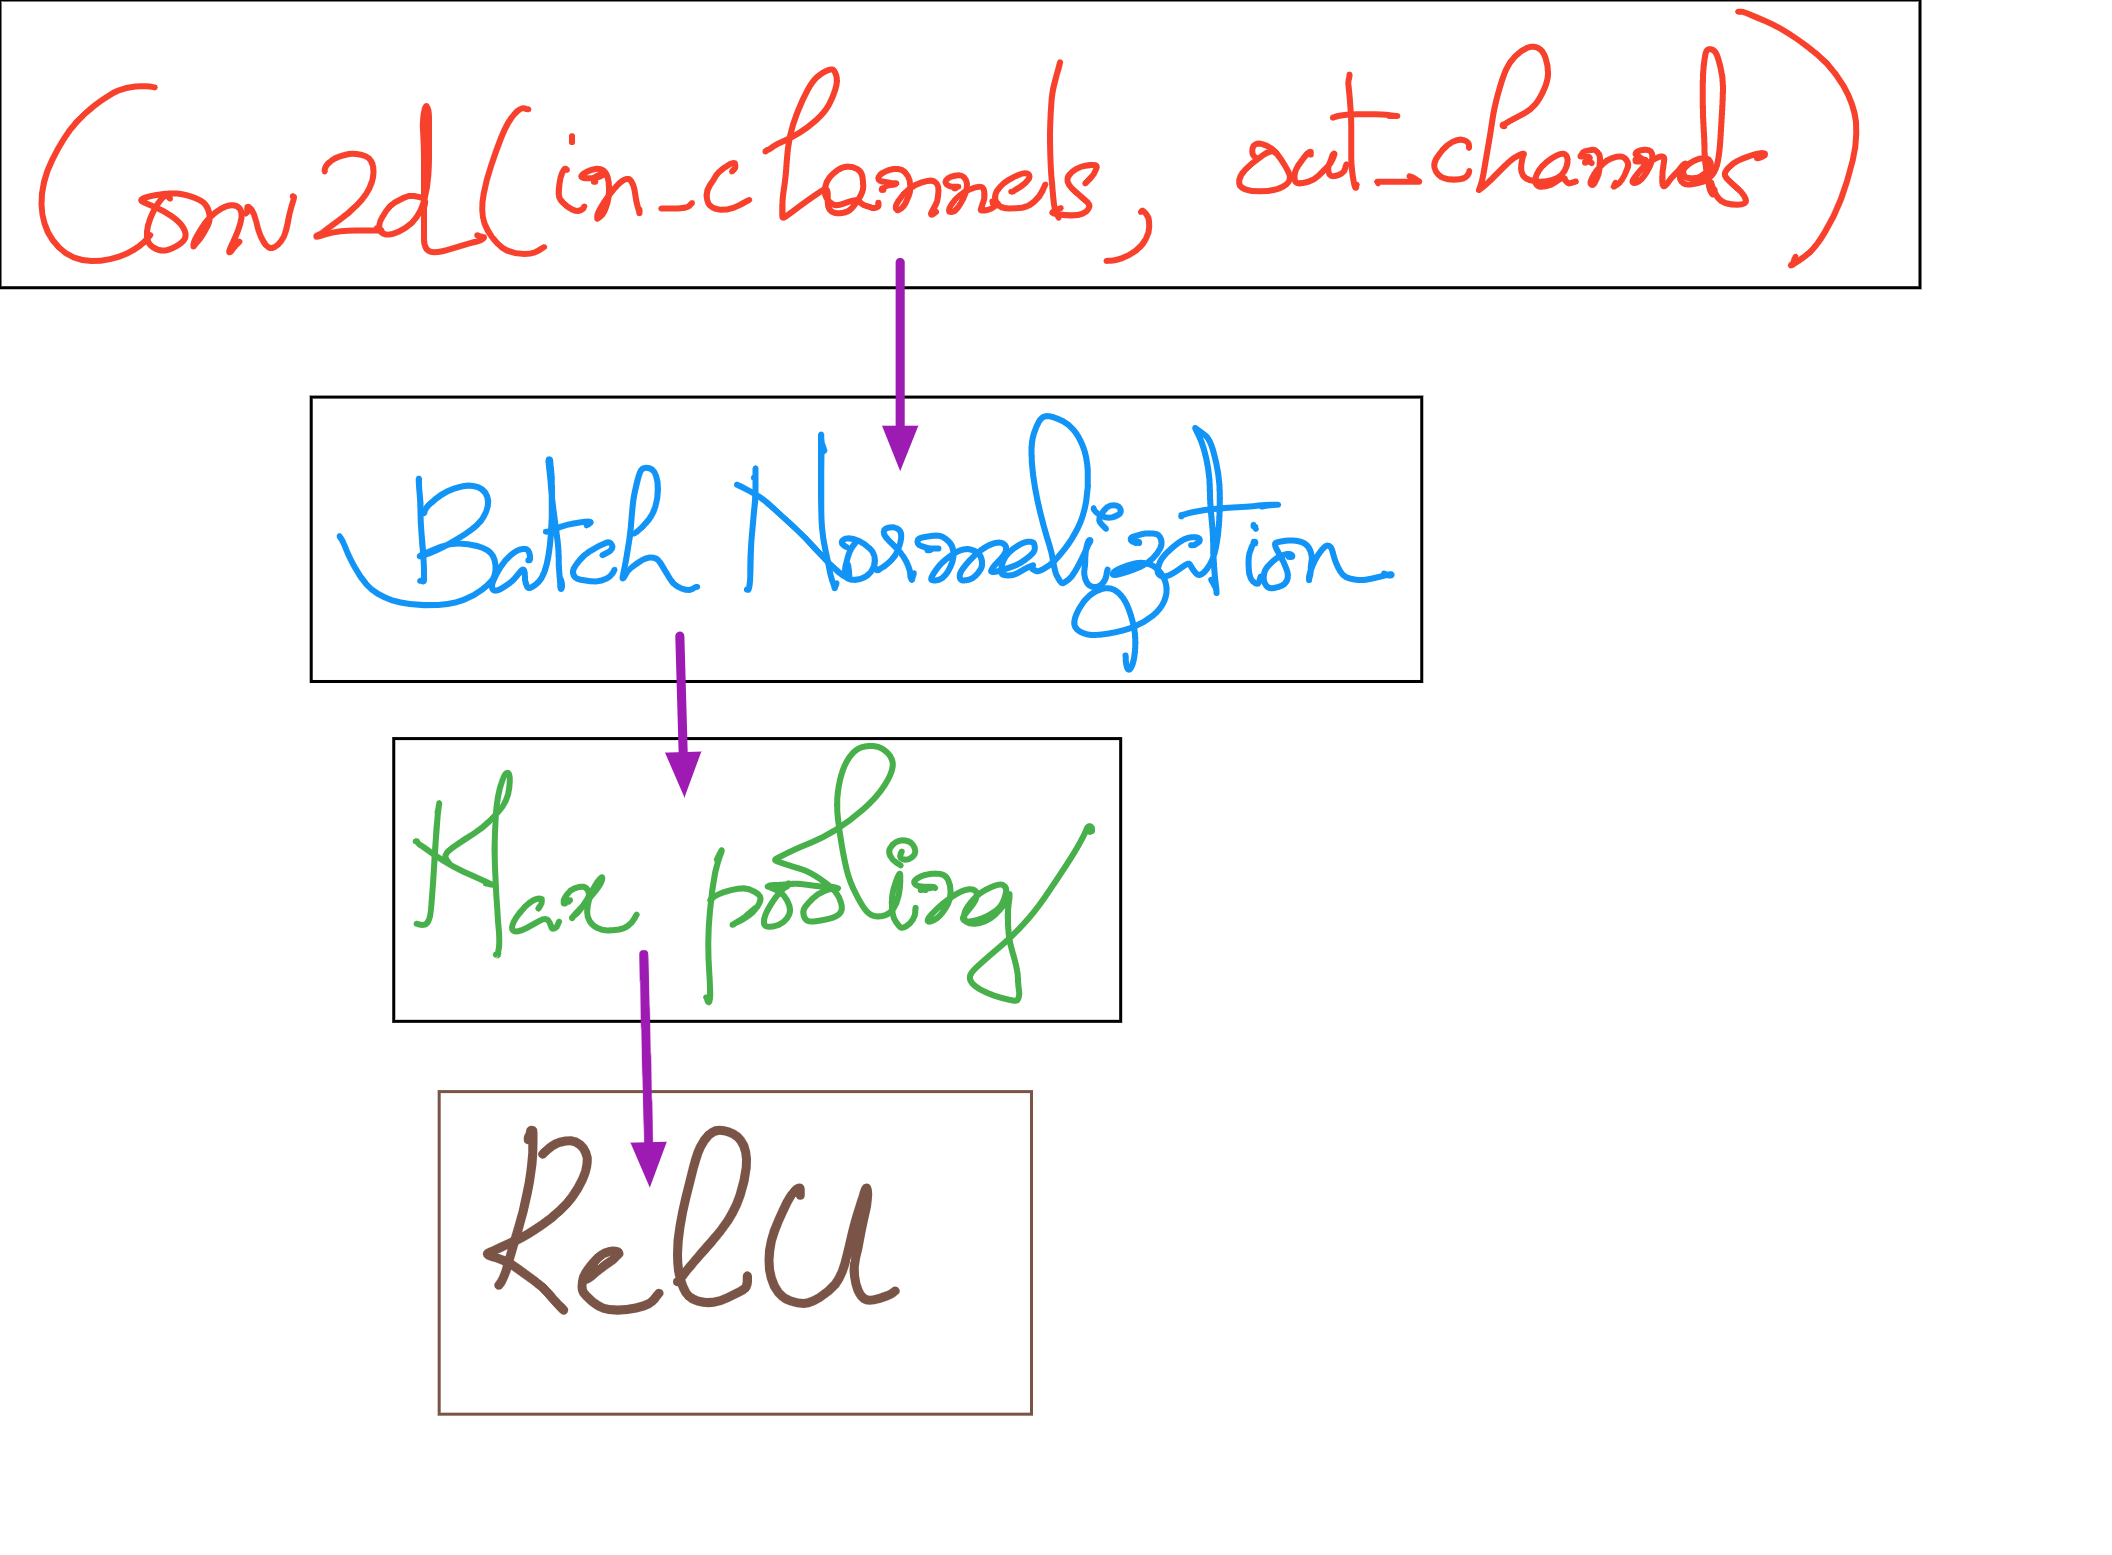 Conv2d(in_channels, out_channels)
Batch Normalization
Max pooling
RelU